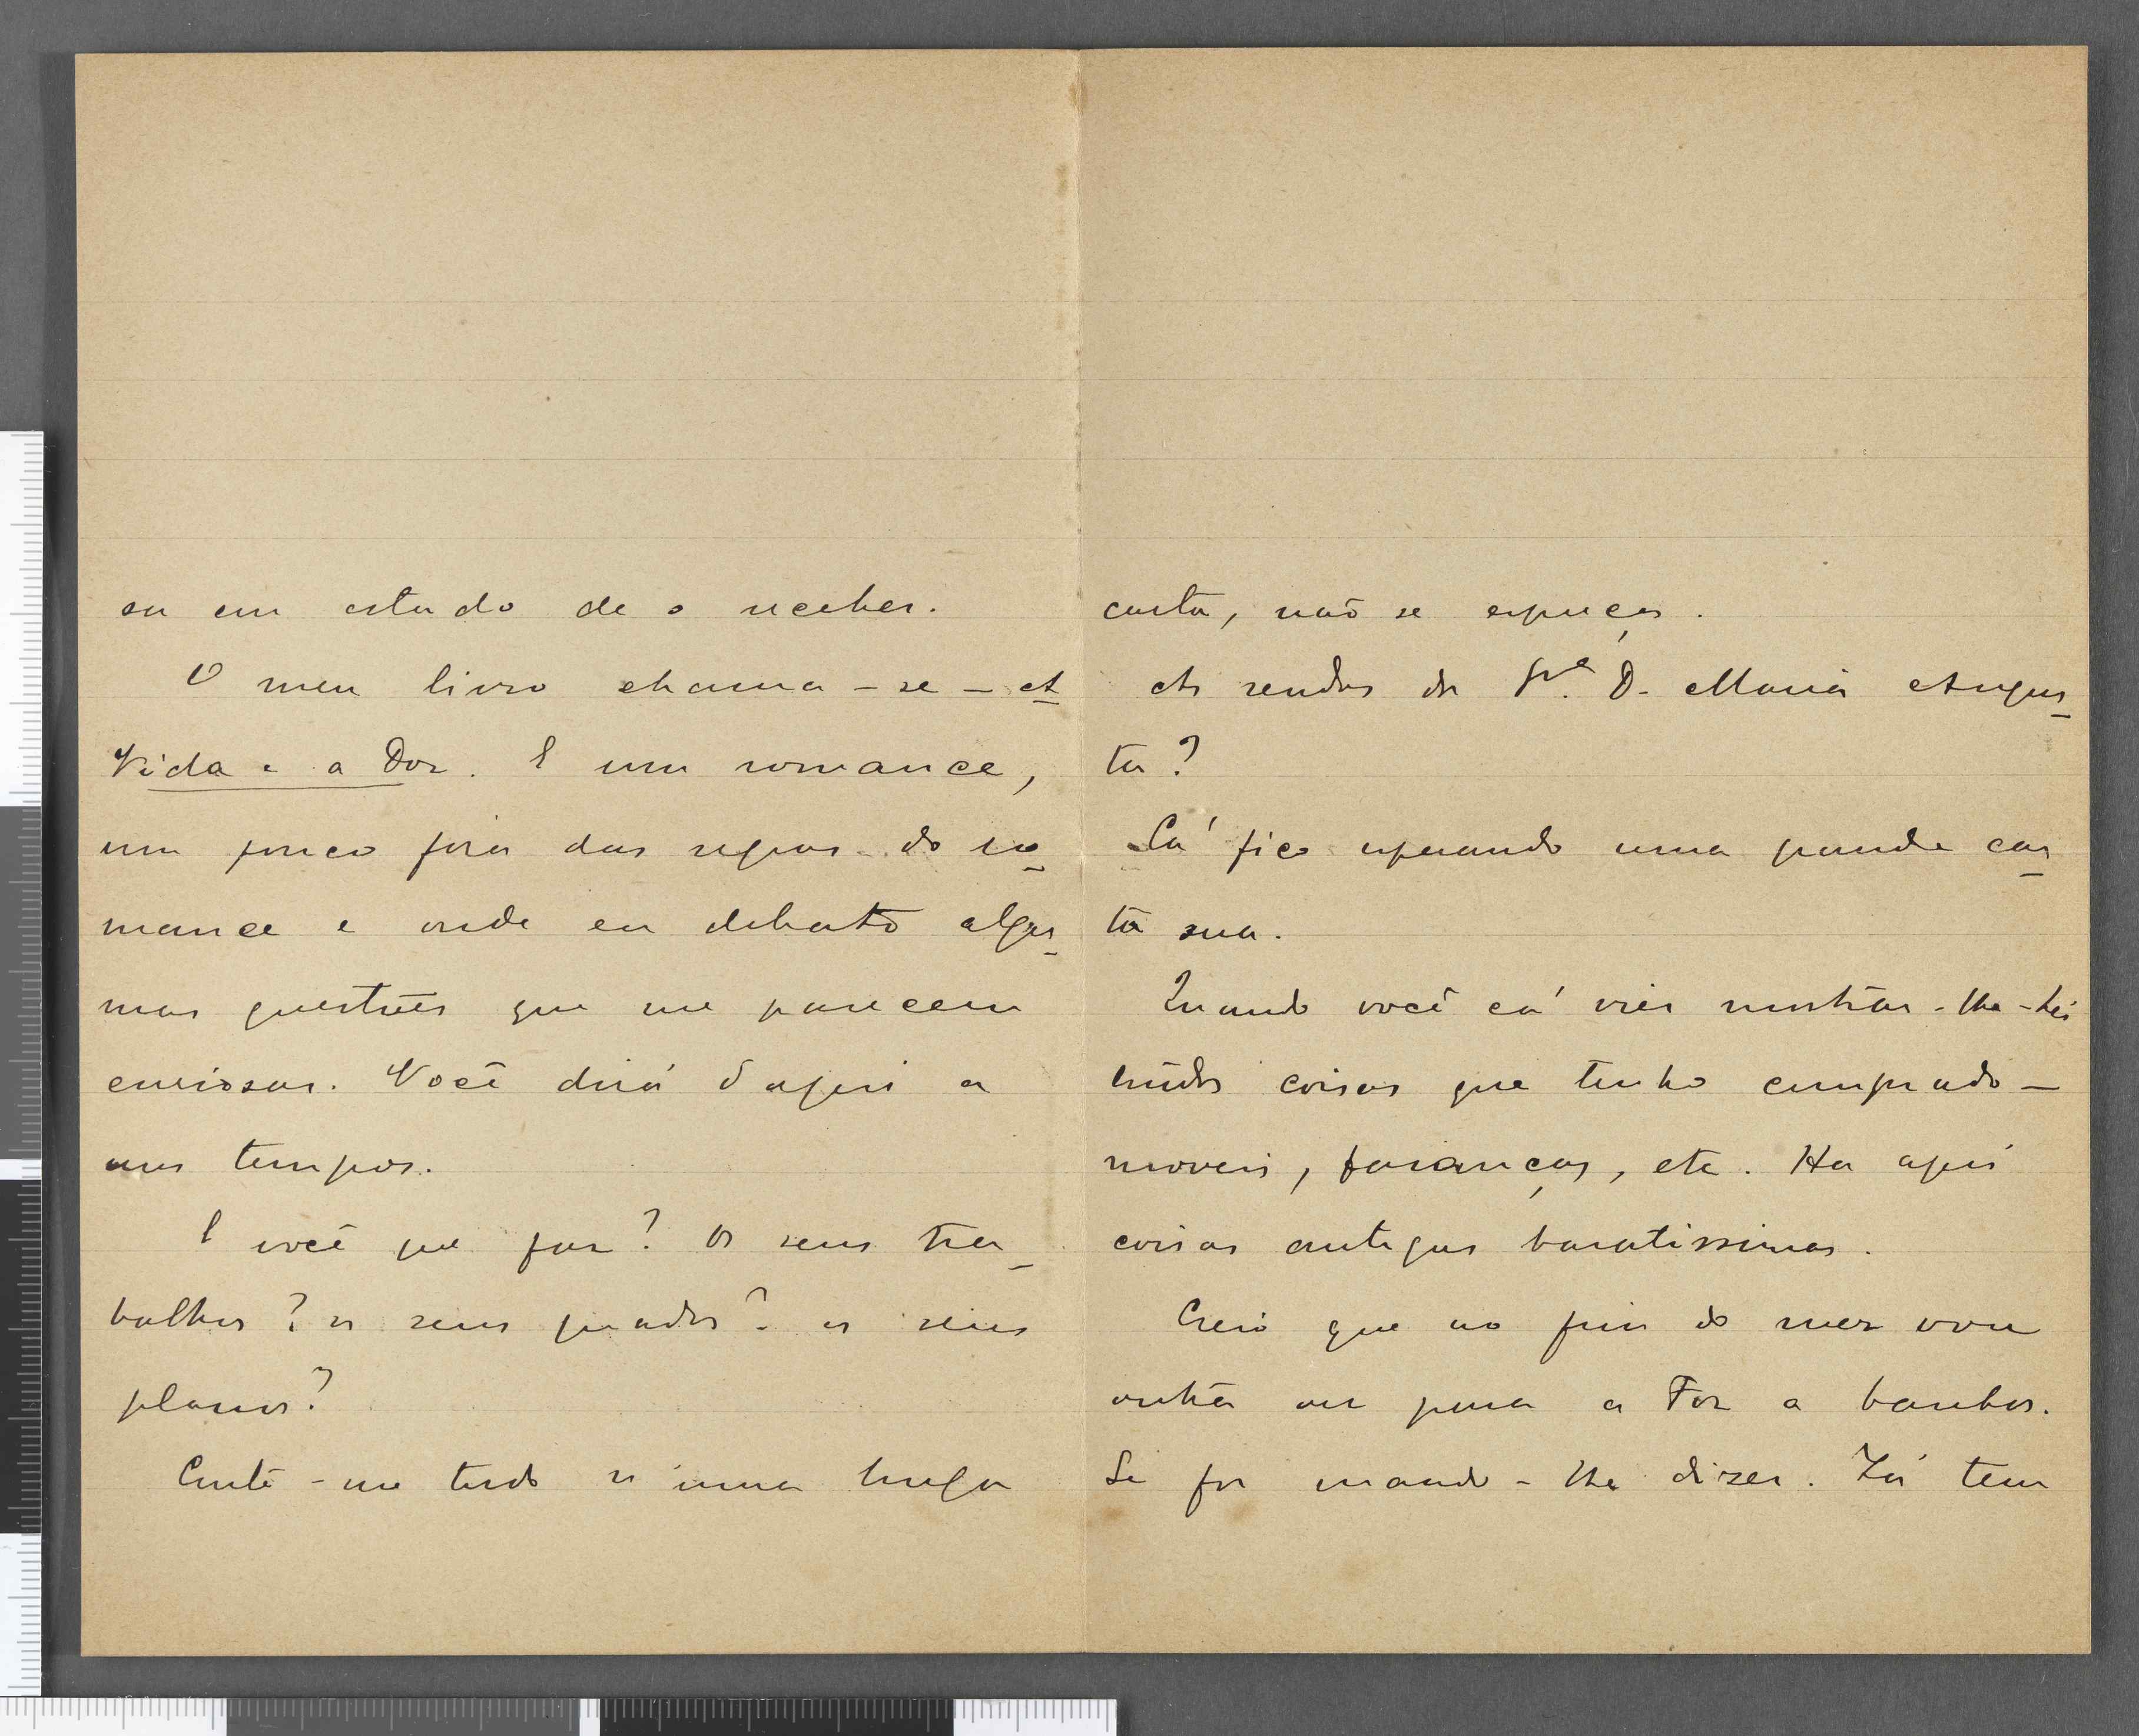 ou em estado de o receber.
O meu livro chama-se - A
Vida e a Dor. É um romance,
um pouco fora das regras do ro-
mance e onde eu debato algu-
mas questões que me parecem
curiosas. Você dirá d'aqui a
uns tempos.
E você que faz? Os seus tra-
balhos? os seus quadros? os seus
planos?
Conte-me tudo n'uma longa
carta, não se esqueça.
As rendas da Sr.ª D. Maria Augus-
ta?
Cá fico esperando uma grande car-
ta sua.
Quando você cá vier mostrar-lhe-hei
lindas coisas que tenho comprado -
moveis, faianças, etc. Ha aqui
coisas antigas baratissimas.
Creio que no fim do mez vou
outra vez para a Foz a banhos.
Se for mando-lhe dizer. Lá tem